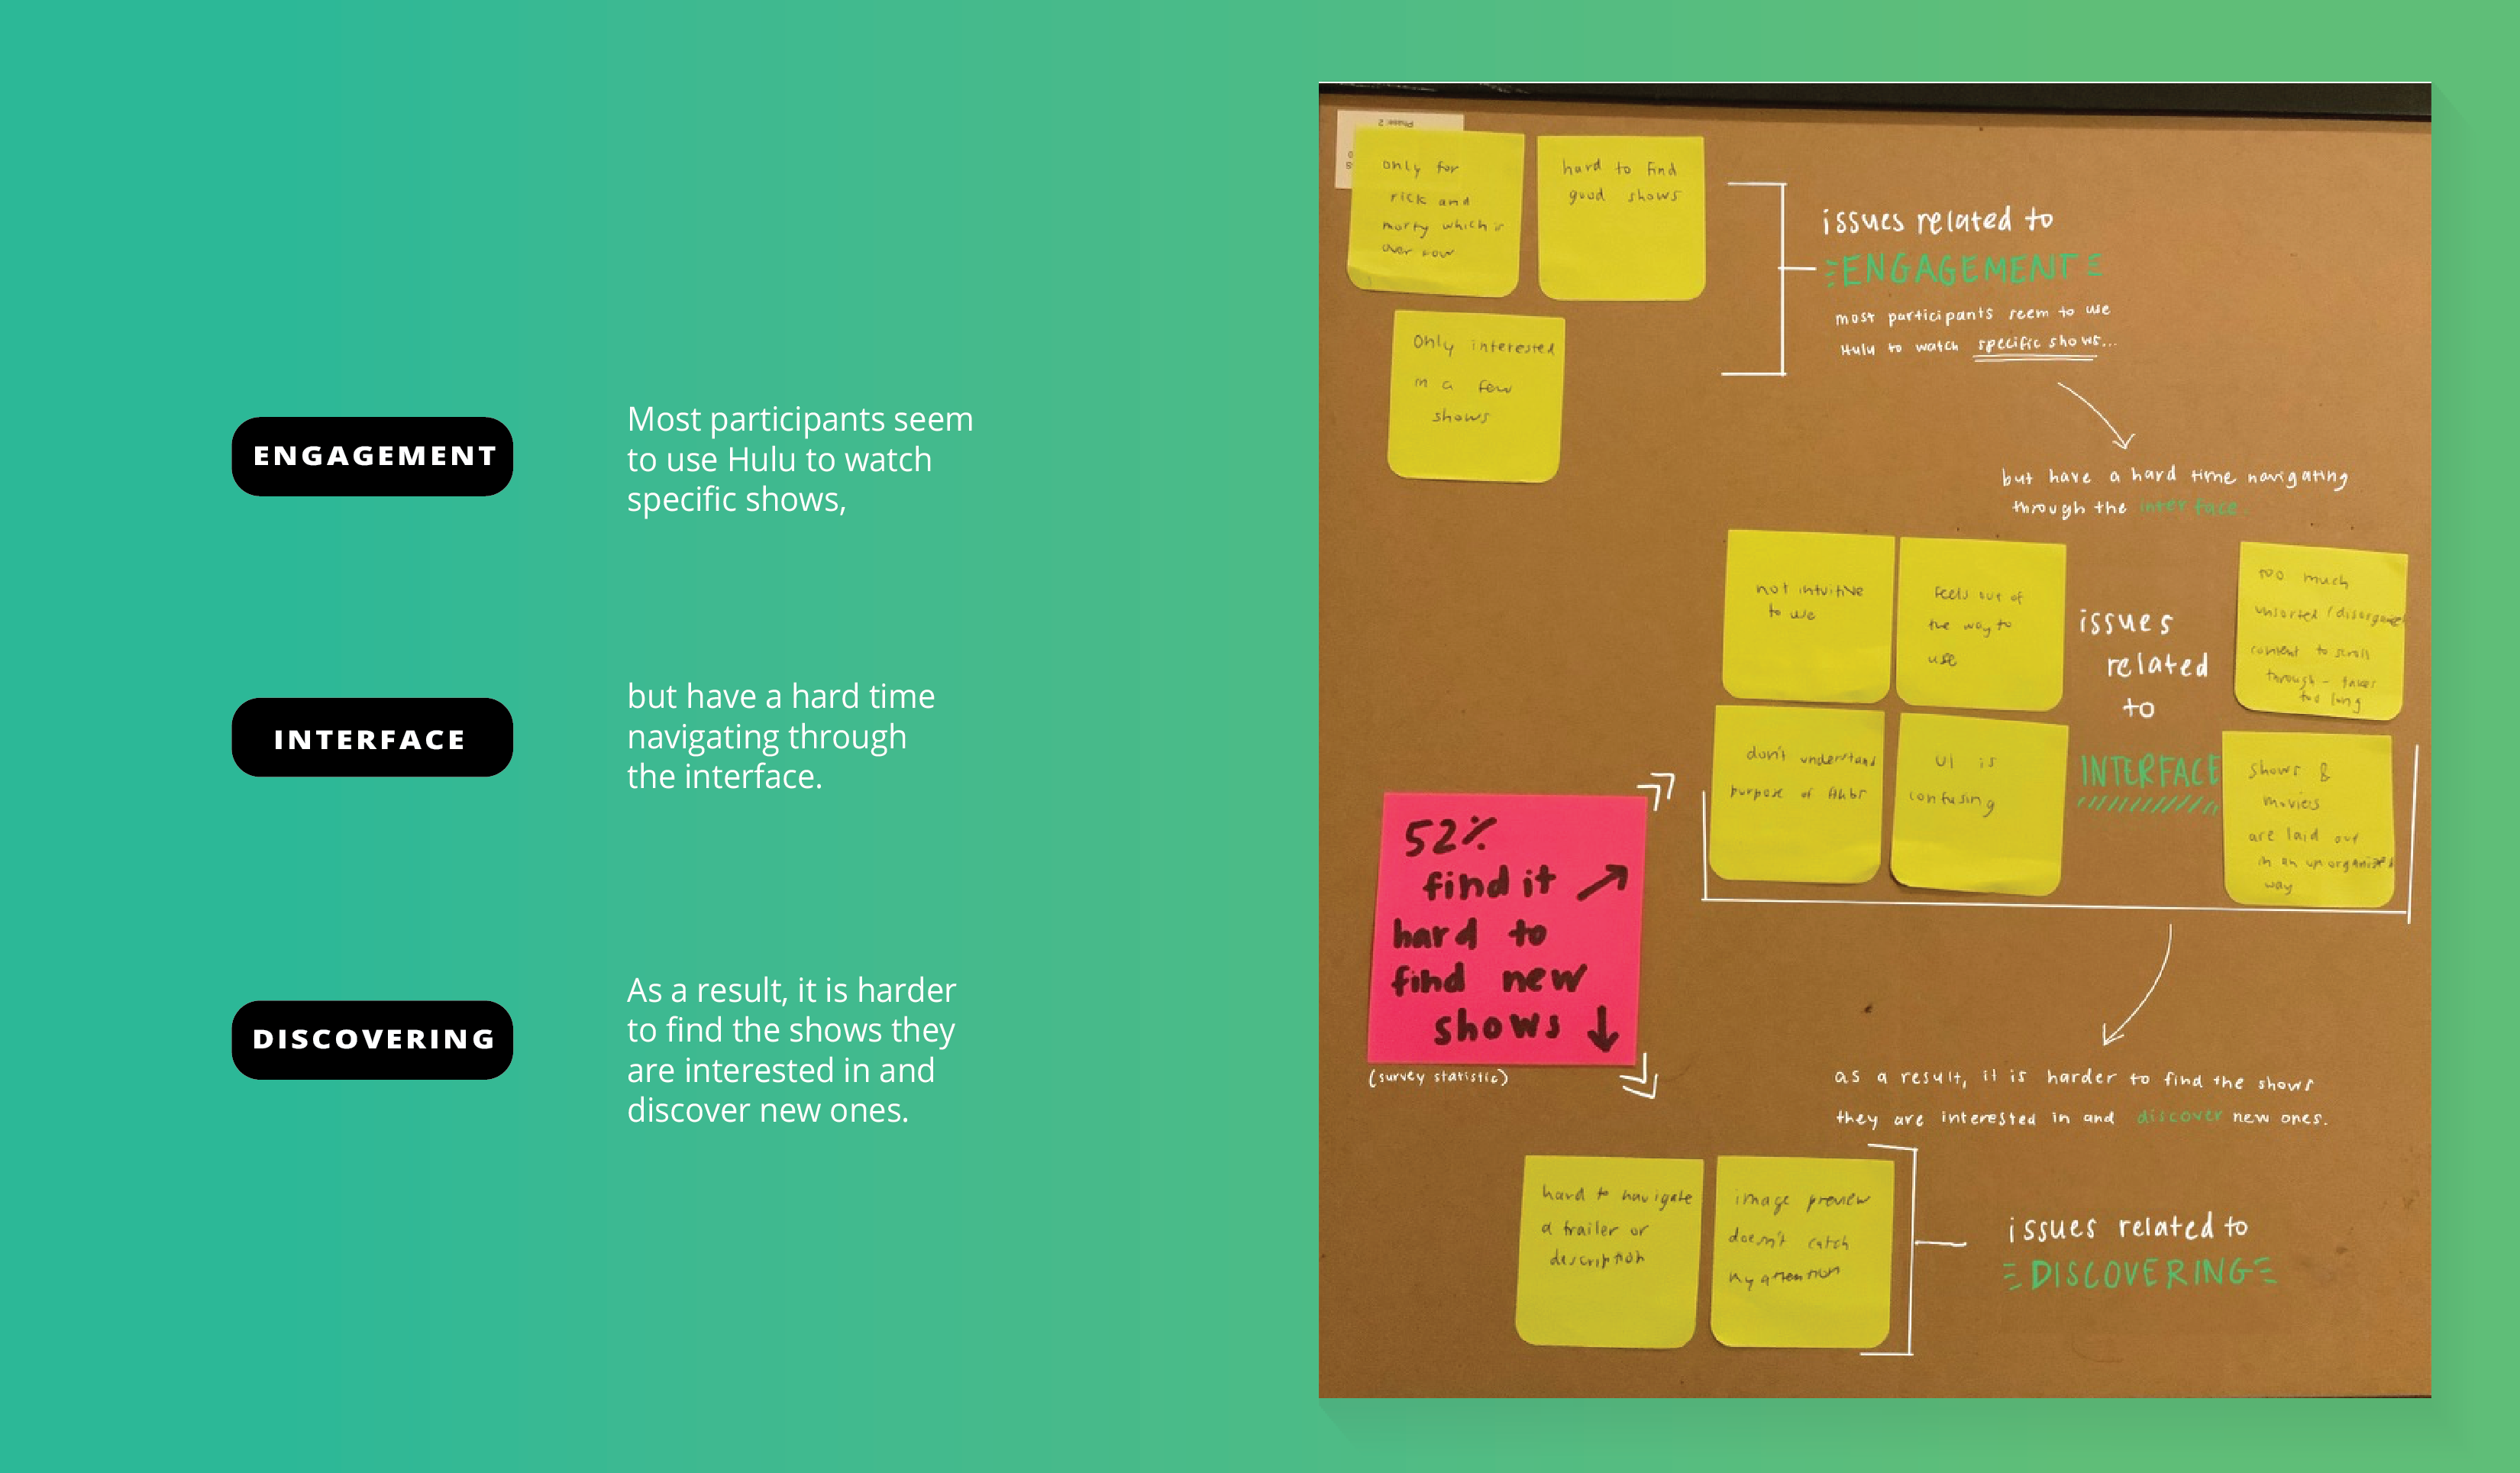 ENGAGEMENT
Most participants seem
to use Hulu to watch
specific shows,
INTERFACE
but have a hard time
navigating through
the interface.
DISCOVERING
As a result, it is harder
to find the shows they
are interested in and
discover new ones.
Phase 2
only for
rick and
morty which is
over now
hard to find
good shows
only interested
in a few
shows
issues related to
ENGAGEMENT
most participants seem to use
Hulu to watch specific shows...
but have a hard time navigating
through the interface.
not intuitive
to use
Feels out of
the way to
use
don't understand
purpose of
UI is
confusing
issues
related
to
INTERFACE
too much
unsorted / disorganized
content to scroll
through - takes
too long
shows &
movies
are laid out
in an unorganized
way
52%
find it
hard to
find new
shows
(survey statistic)
as a result, it is harder to find the shows
they are interested in and discover new ones.
hard to navigate
a trailer or
description
image preview
doesn't catch
my attention
issues related to
DISCOVERING